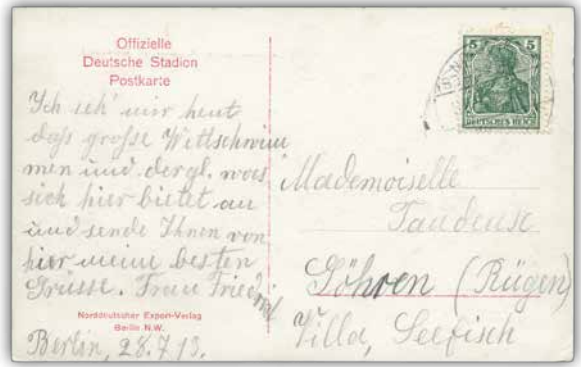 Offizielle
Deutsche Stadion
Postkarte
Ich seh' mir heut
daß große Wettschwim
men und dergl. was
sich hier bietet an
und sende Ihnen von
hier meine besten
Grüsse. Frau Friedrich
Norddeutscher Export-Verlag
Berlin N.W.
Berlin, 28.7.13.
5 5
DEUTSCHES REICH
Mademoiselle
Göhren (Rügen)
Villa, Seefisch